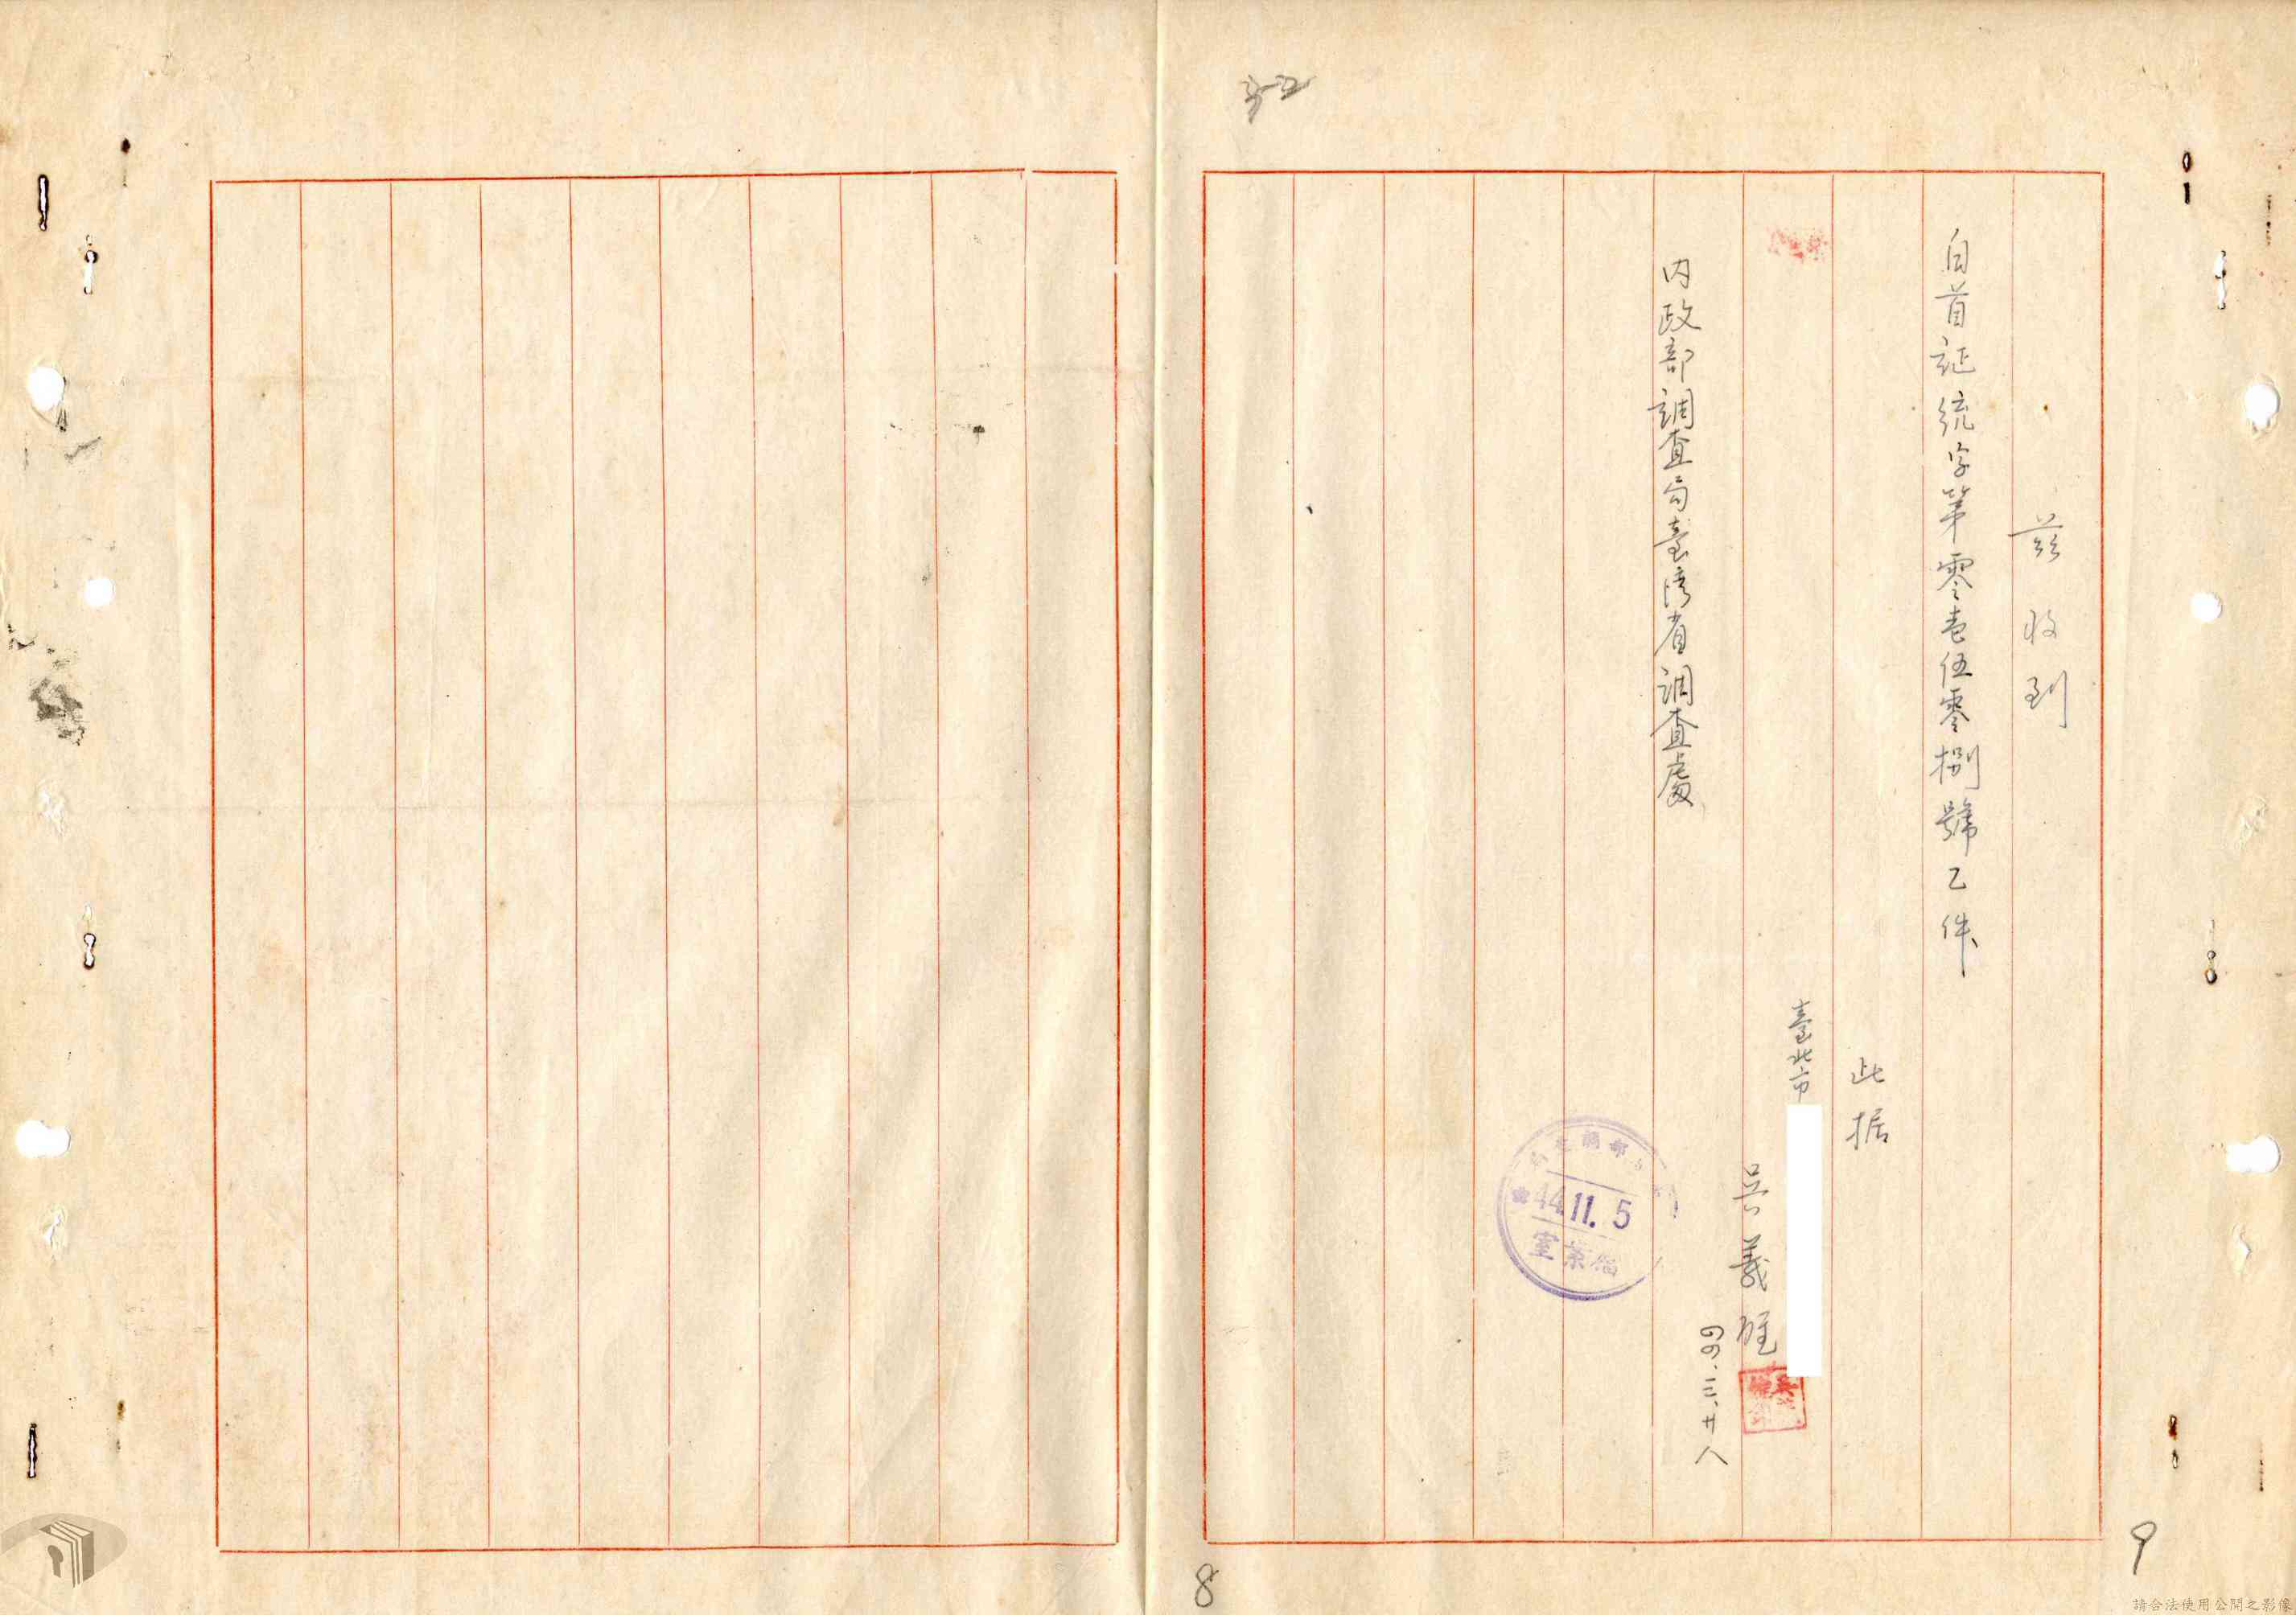 茲收到
自首証統字第零壱伍零捌號乙件
此据
臺北市
吳義
四四.三.廿八
内政部調查局臺湾省調查處
44.11.5
室案檔
8
9
請合法使用公開之影像